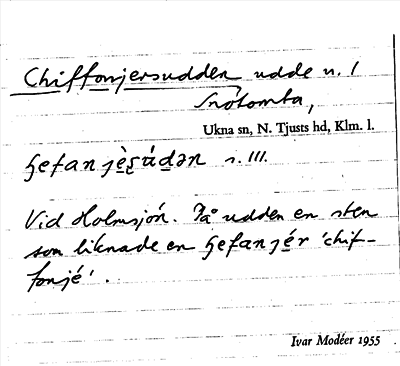 Chiffonjersudden udde n. l
Snötomta,
Ukna sn, N. Tjusts hd, Klm. l.
s. III.
Vid Holmsjön. På udden en sten
som liknade en 'chif-
fonjé'.
Ivar Modéer 1955